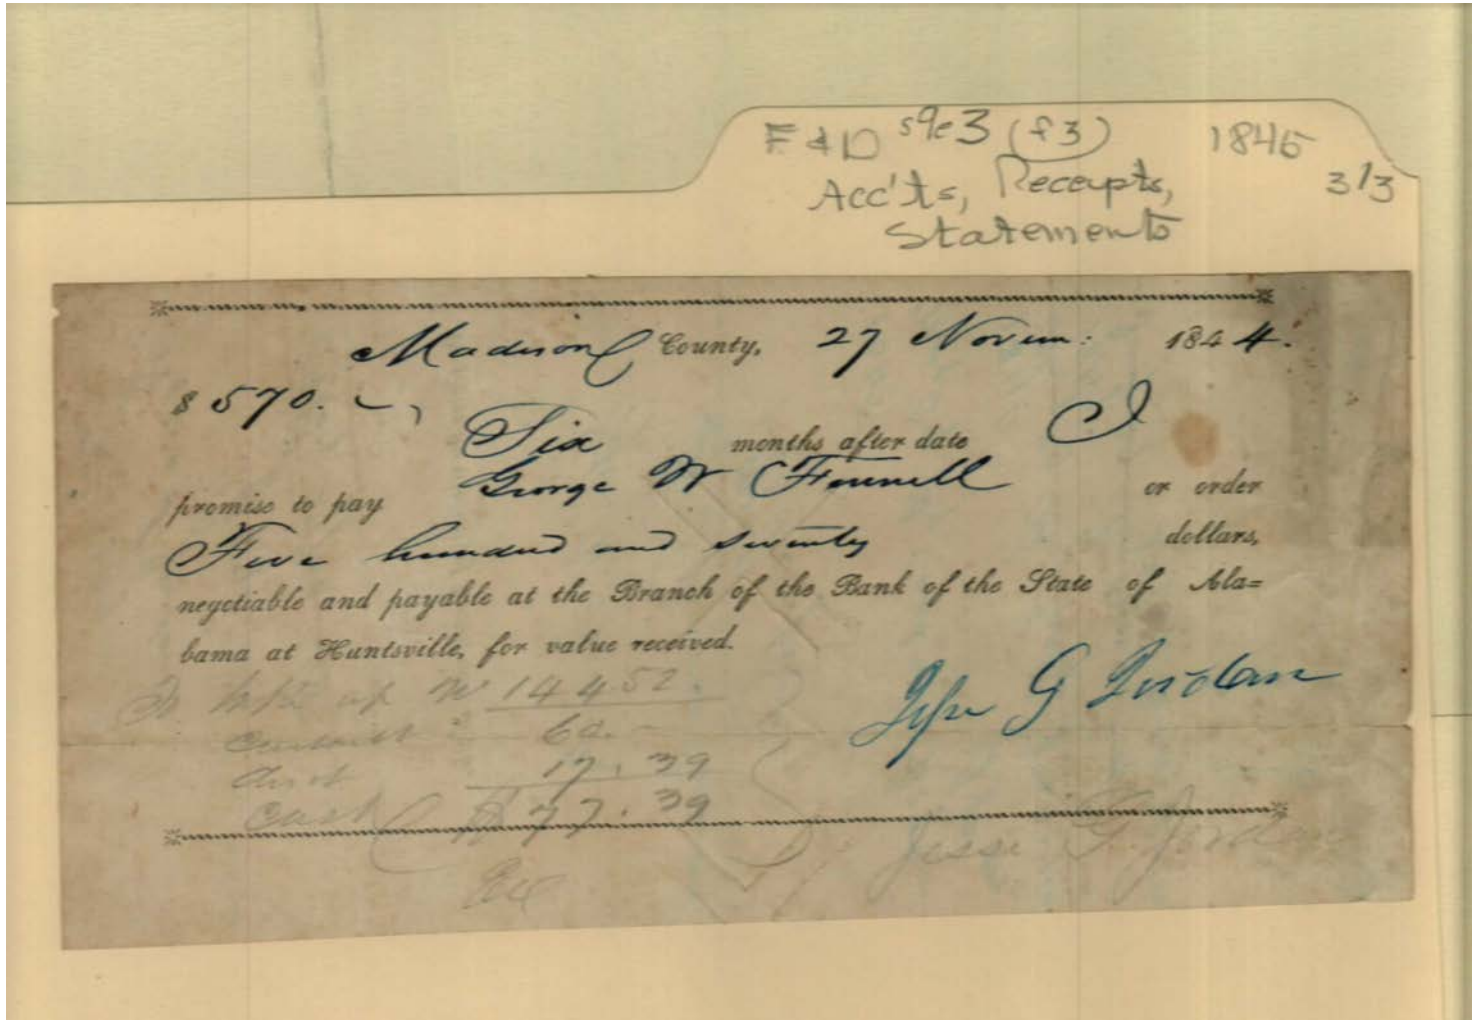 F & D s9e3 (f3) 1845
3/3
Acc'ts, Receipts,
Statements
Madison County, 27 Novem: 1844.
$570.
Six months after date I
promise to pay George W Fennell or order
Five hundred and seventy dollars,
negotiable and payable at the Branch of the Bank of the State of Ala=
bama at Huntsville, for value received.
144 52.
Jesse G Jordan
60.
17.39
Cash $77.39
Jesse G. Jordan